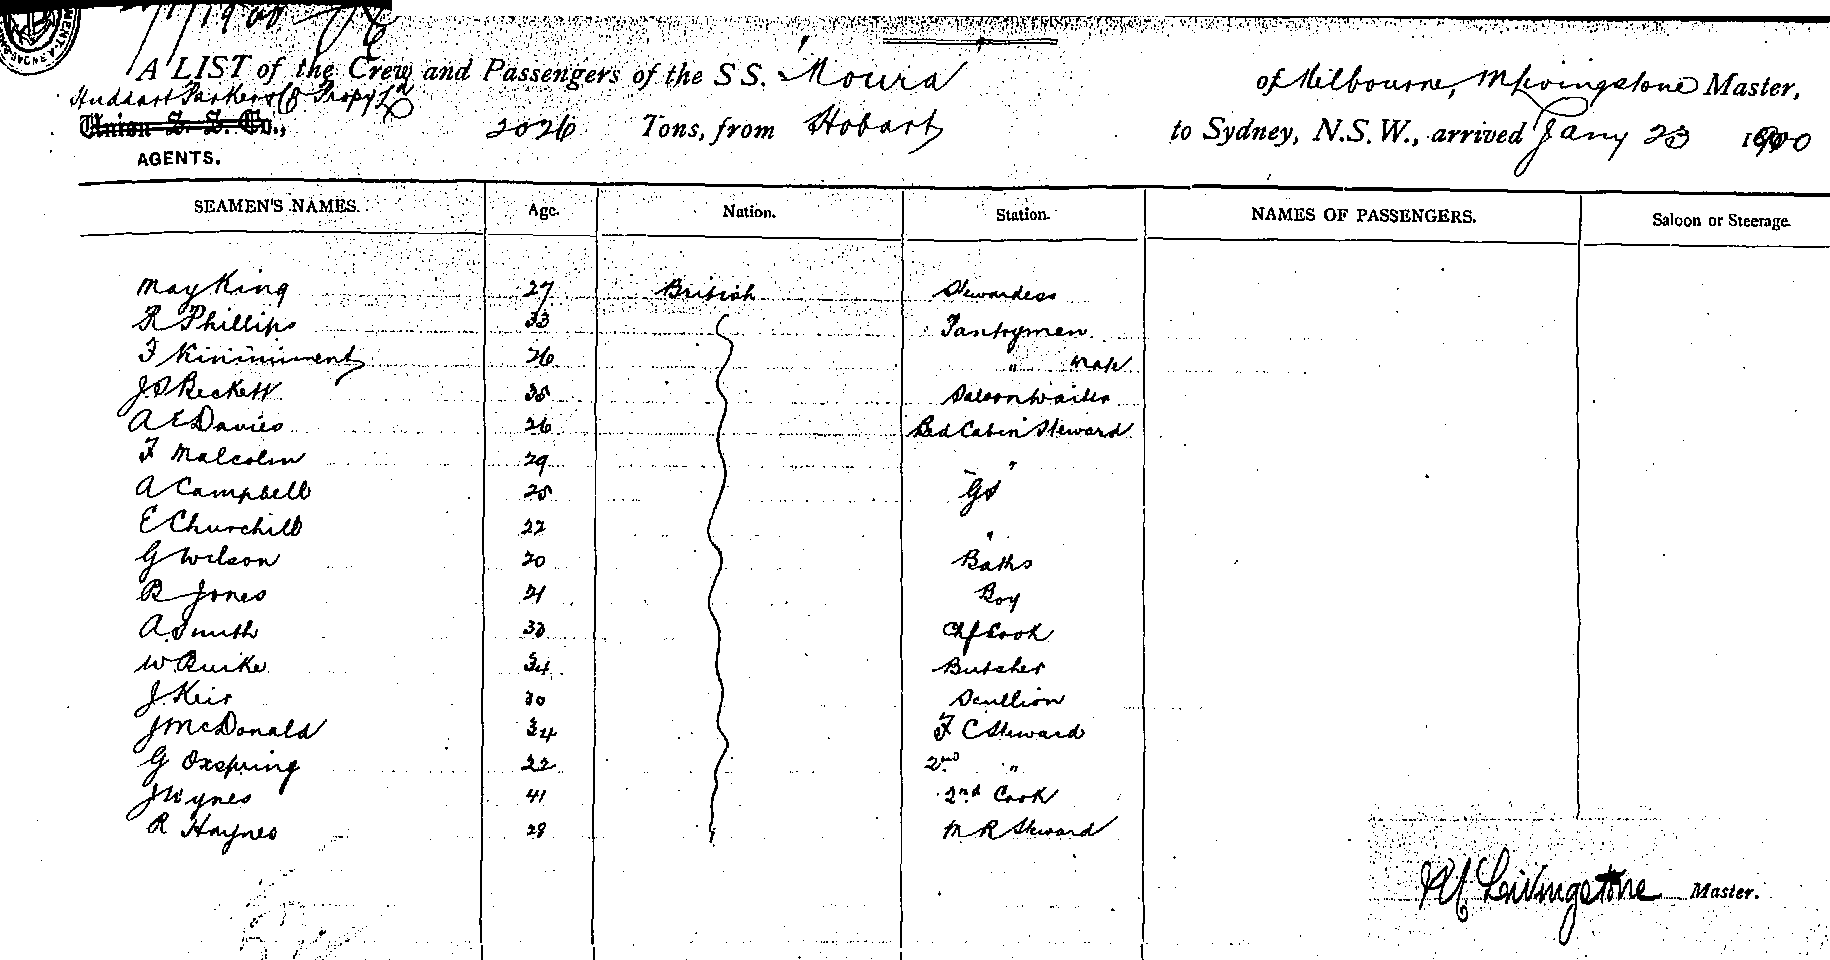 A LIST of the Crew and Passengers of the S S. Moura of Melbourne, M Livingstone Master,
Huddart Parker & Co Propy Ld
Union S. S. Co., 2026 Tons, from Hobart to Sydney, N.S.W., arrived Jany 23 1900
AGENTS.
SEAMEN'S NAMES. Age. Nation. Station. NAMES OF PASSENGERS. Saloon or Steerage.
May King 27 British Stewardess
R Phillips 33 Pantrymen
F Kinimment 26 " mate
J. Beckett 35 Saloon Waiter
A E Davies 26 Bed Cabin Steward
F Malcolm 29 "
A Campbell 25 GS
E Churchill 22 "
G Wilson 20 Baths
R Jones 21 Boy
A Smith 33 Chf Cook
W Burke 34 Butcher
J. Keir 30 Scullion
J McDonald 34 F C Steward
G Oxspring 22 2nd "
J Wynes 41 2nd Cook
R Haynes 28 M R Steward
M Livingstone Master.